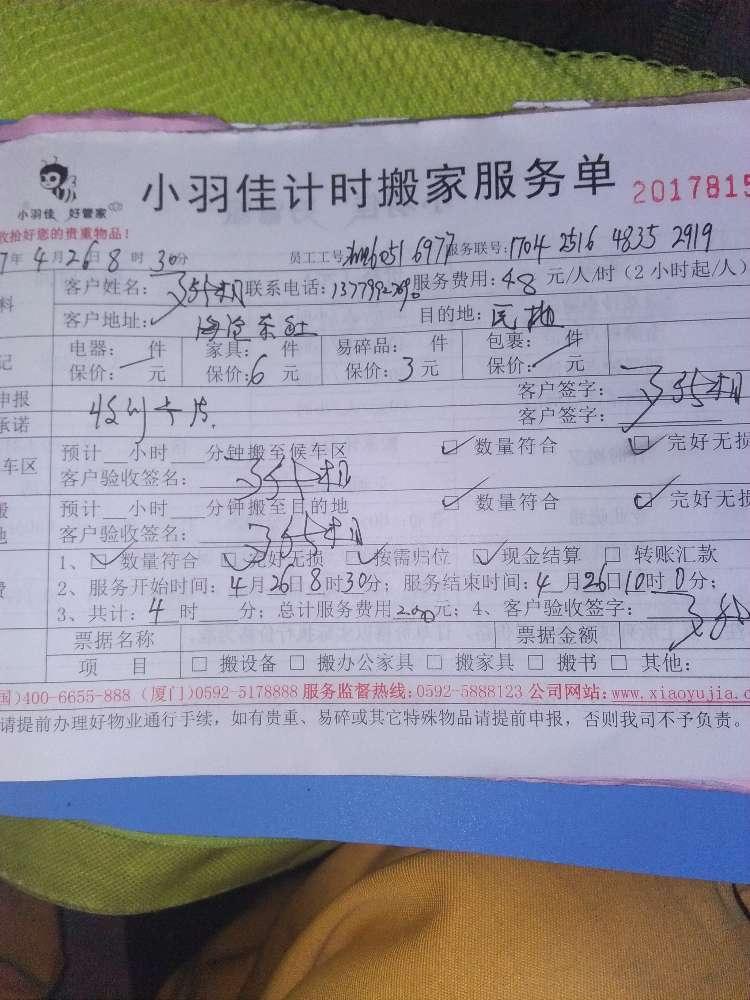 小羽佳计时搬家服务单 2017815
小羽佳 好管家
收拾好您的贵重物品!
7年4月26 8时30分 员工工号: 6051 6977 服务联号:1704 2516 4835 2919
料 客户姓名: 联系电话: 服务费用:48元/人/时(2小时起/人)
客户地址: 目的地:
记 电器: 件 家具: 件 易碎品: 件 包裹: 件
保价: 元 保价:6元 保价:3元 保价: 元
申报 客户签字:
承诺 客户签字:
车区 预计 小时 分钟搬至候车区 ☑ 数量符合 ☑ 完好无损
客户验收签名:
搬 预计 小时 分钟搬至目的地 ☑ 数量符合 ☑ 完好无损
地 客户验收签名:
1、☑ 数量符合 ☑ 完好无损 ☑ 按需归位 ☑ 现金结算 □ 转账汇款
费 2、服务开始时间:4月26日8时30分;服务结束时间:4月26日10时0分;
3、共计:4时 分;总计服务费用200元;4、客户验收签字:
票据名称 票据金额
项 目 □ 搬设备 □ 搬办公家具 □ 搬家具 □ 搬书 □ 其他:
国)400-6655-888 (厦门)0592-5178888 服务监督热线:0592-5888123 公司网站:www.xiaoyujia.c
请提前办理好物业通行手续,如有贵重、易碎或其它特殊物品请提前申报,否则我司不予负责。